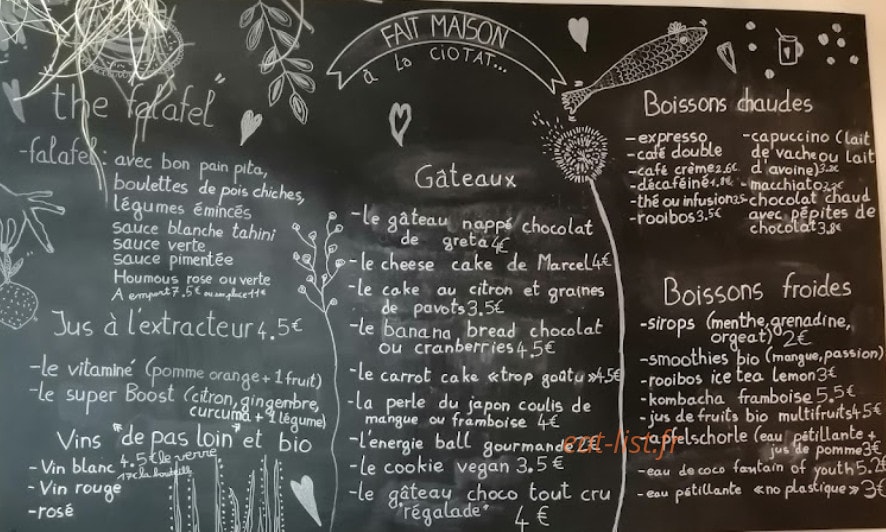 FAIT MAISON
à La CIOTAT...
"the falafel"
-falafel: avec bon pain pita,
boulettes de pois chiches,
légumes émincés
sauce blanche tahini
sauce verte
sauce pimentée
Houmous rose ou verte
A emport 7.5€ ou en place 11€
Jus à l'extracteur 4.5€
-le vitaminé (pomme orange + 1 fruit)
-le super Boost (citron, gingembre,
curcuma + 1 légume)
Vins "de pas loin" et bio
-Vin blanc 4.5€ le verre
17€ la bouteille
-Vin rouge
-rosé
Gâteaux
-le gâteau nappé chocolat
de greta 4€
-le cheese cake de Marcel 4€
-le cake au citron et graines
de pavots 3.5€
-le banana bread chocolat
ou cranberries 4,5€
-le carrot cake «trop goûtu» 4.5€
-la perle du japon coulis de
mangue ou framboise 4€
-l'énergie ball gourmande
-le cookie vegan 3.5€
-le gâteau choco tout cru
"régalade" 4€
Boissons chaudes
-expresso
-café double
-café crème 2.6€
-décaféiné 1.8€
-thé ou infusion 3.5
-rooibos 3.5€
-capuccino (lait
de vache ou lait
d'avoine) 3.2€
-macchiato
-chocolat chaud
avec pépites de
chocolat 3.8€
Boissons froides
-sirops (menthe, grenadine,
orgeat) 2€
-smoothies bio (mangue, passion)
-rooibos ice tea lemon 3€
-kombacha framboise 5.5€
-jus de fruits bio multifruits 4.5€
-apfelschorle (eau pétillante +
jus de pomme 3€
-eau de coco fantain of youth 5.2€
-eau pétillante «no plastique» 3€
eat-list.fr